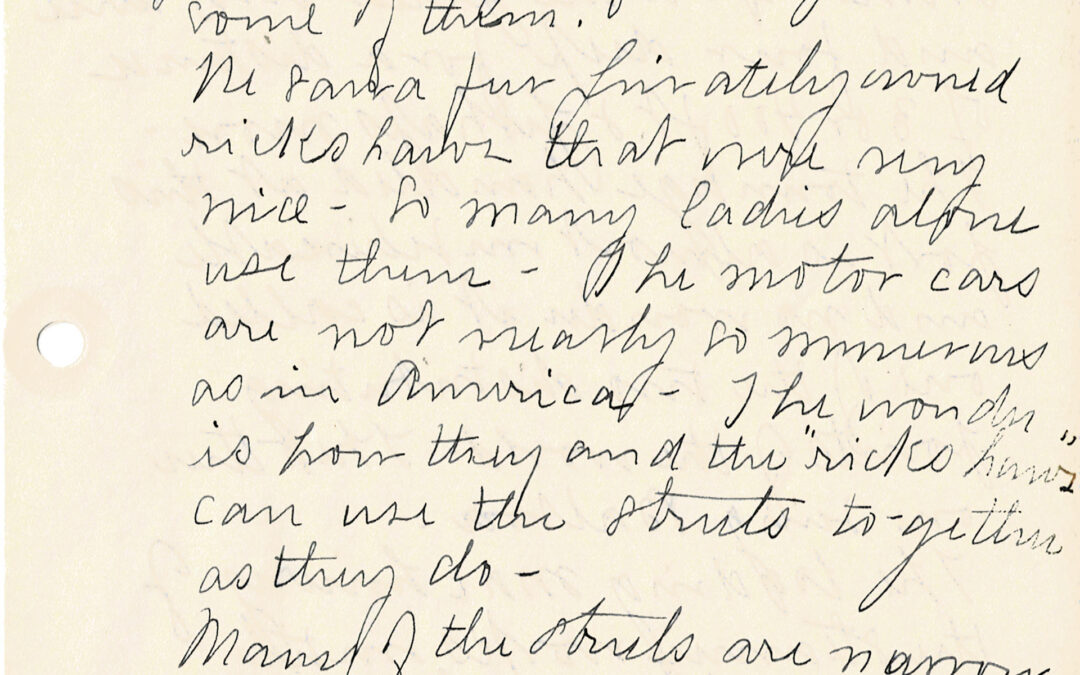 some of them.
We saw a few privately owned
rickshaws that were very
nice - So many ladies alone
use them - The motor cars
are not nearly so numerous
as in America - The wonder
is how they and the "rickshaws"
can use the streets to-gether
as they do -
Many of the streets are narrow